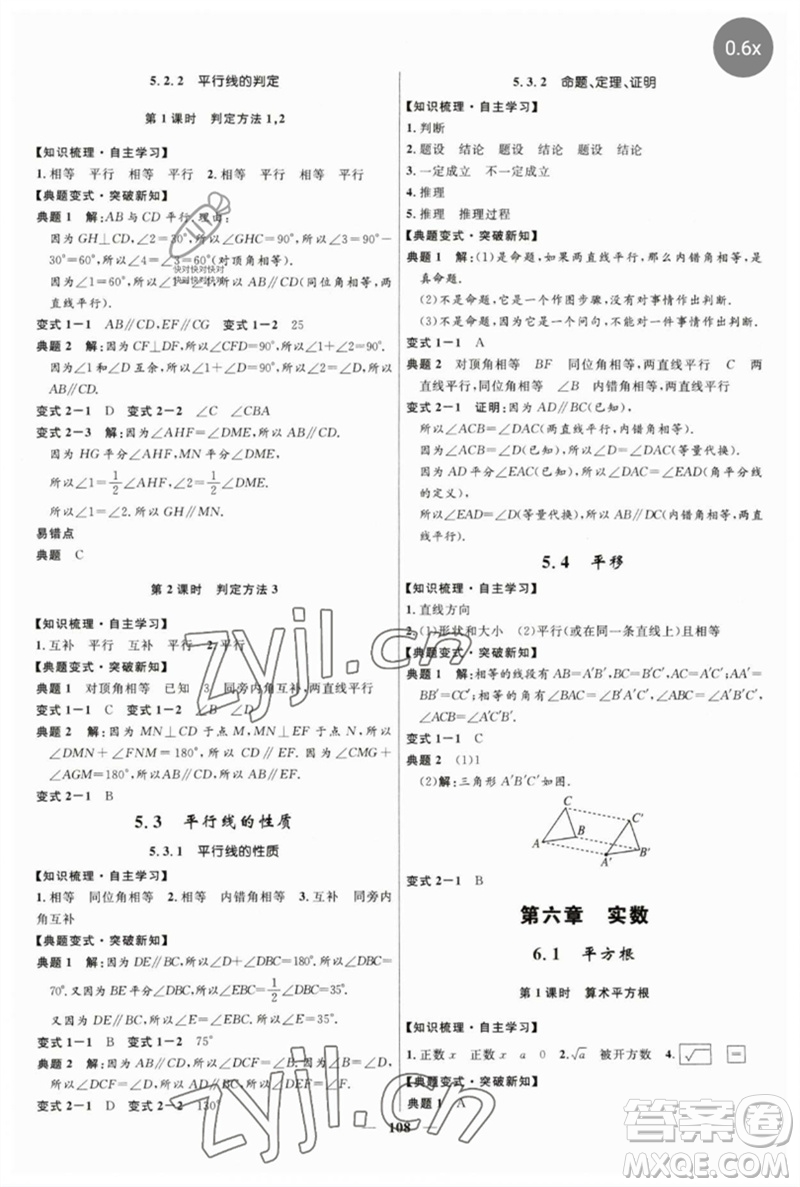 0.6x
5.2.2 平行线的判定
第1课时 判定方法1,2
【知识梳理·自主学习】
1.相等 平行 相等 平行 2.平行 相等 平行
【典题变式·突破新知】
典题1 解:AB与CD平行,理由:
因为GH⊥CD,∠2=30°,所以∠GHC=90°,所以∠3=90°-
30°=60°,所以∠4=∠3=60°(对顶角相等).
因为∠1=60°,所以∠1=∠4.所以AB∥CD(同位角相等,两
直线平行).
变式1-1 AB∥CD,EF∥CG 变式1-2 25
典题2 解:因为CF⊥DF,所以∠CFD=90°,所以∠1+∠2=90°.
因为∠1和∠D互余,所以∠1+∠D=90°,所以∠2=∠D.所以
AB∥CD.
变式2-1 D 变式2-2 ∠C ∠CBA
变式2-3 解:所以∠AHF=∠DME,所以∠AHF=∠DME.
因为HG平分∠AHF,MN平分∠DME,
所以∠1=1/2∠AHF,∠2=1/2∠DME.
所以∠1=∠2.所以GH∥MN.
易错点
典题 C
第2课时 判定方法3
【知识梳理·自主学习】
1.互补 平行 互补 平行 2.平行
【典题变式·突破新知】
典题1 对顶角相等 已知 3 同旁内角互补,两直线平行
变式1-1 C 变式1-2 D
典题2 解:因为MN⊥CD于点M,MN⊥EF于点N,所以
∠DMN+∠FNM=180°,所以CD∥EF.因为∠CMG+
∠AGM=180°,所以AB∥CD.所以AB∥EF.
变式2-1 B
5.3 平行线的性质
5.3.1 平行线的性质
【知识梳理·自主学习】
1.相等 同位角相等 2.相等 内错角相等 3.互补 同旁内
角互补
【典题变式·突破新知】
典题1 解:因为DE∥BC,所以∠D+∠DBC=180°.所以∠DBC=
70°.又因为BE平分∠DBC,所以∠EBC=1/2∠DBC=35°.
又因为DE∥BC,所以∠E=∠EBC,所以∠E=35°.
变式1-1 D 变式1-2 75°
典题2 解:因为AB∥CD,所以∠DCF=∠B=50°.因为
∠D=50°,所以∠DCF=∠D,所以AD∥BC.
变式2-1 D 变式2-2 130°
5.3.2 命题、定理、证明
【知识梳理·自主学习】
1.判断
2.题设 结论 题设 结论 题设 结论
3.一定成立 不一定成立
4.推理
5.推理 推理过程
【典题变式·突破新知】
典题1 解:(1)是命题,如果两直线平行,那么内错角相等,是真
命题.
(2)不是命题,它是一个作图步骤,没有对事情作出判断.
(3)不是命题,因为它是一个问句,不能对一件事情作出判断.
变式1-1 A
典题2 对顶角相等 BF 同位角相等,两直线平行 C 两
直线平行,同位角相等 ∠B 内错角相等,两直线平行
变式2-1 证明:因为AD∥BC(已知),
所以∠ACB=∠DAC(两直线平行,内错角相等).
因为∠ACB=∠D(已知),所以∠DAC=∠D(等量代换).
因为AD平分∠EAC(已知),所以∠DAC=∠EAD(角平分线
的定义),
所以∠EAD=∠D(等量代换),所以AB∥DC(内错角相等,两直
线平行).
5.4 平移
【知识梳理·自主学习】
1.直线方向
2.(1)形状和大小 (2)平行(或在同一条直线上) 相等
【典题变式·突破新知】
典题1 解:相等的线段有AB=A'B',BC=B'C',AC=A'C',AA'=
BB'=CC'.相等的角有∠BAC=∠B'A'C',∠ABC=∠A'B'C',
∠ACB=∠A'C'B'.
变式1-1 C
典题2 (1)1
(2)解:三角形A'B'C'如图.
C
C'
B
A
B'
A'
变式2-1 B
第六章 实数
6.1 平方根
第1课时 算术平方根
【知识梳理·自主学习】
1.正数x 正数x a 0 2.√a 被开方数 4.√ =
【典题变式·突破新知】
典题1 A
108
快对快对快对
快对快对快对
zyjl.cn
zyjl.cn
答案圈
MXQE.COM